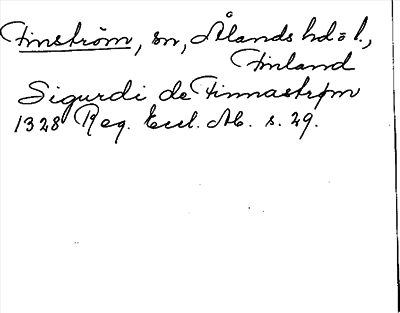 Finström, sn, Ålands hd = l.,
Finland
Sigurdi de Finnastrøm
1328 Reg. Eccl. Ab. s. 29.